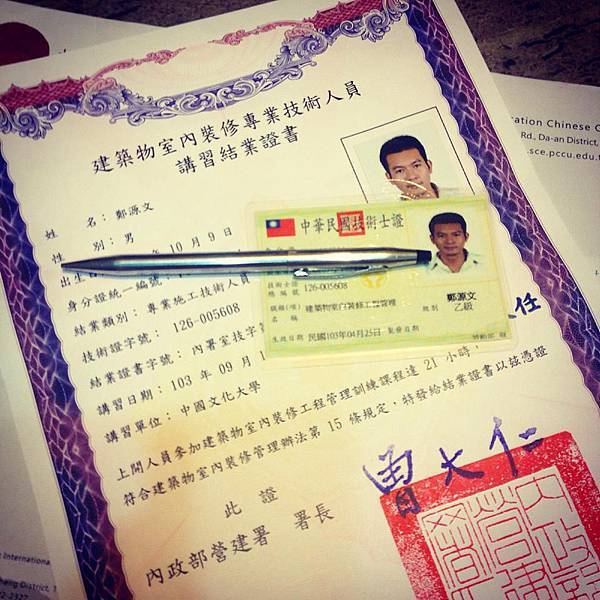 建築物室內裝修專業技術人員
講習結業證書
姓 名：鄭源文
性 別：男
出生 10 月 9 日
身分證統一編號：
結業類別：專業施工技術人員
技術證字號：126-005608
結業證書字號：內署室技字
講習日期：103 年 09 月
講習單位：中國文化大學
上開人員參加建築物室內裝修工程管理訓練課程達 21 小時，
符合建築物室內裝修管理辦法第 15 條規定，特發給結業證書以茲憑證
此 證
內政部營建署 署長
曾大仁
任
中華民國技術士證
技術士證
總編號 126-005608
職類(項)
名稱 建築物室內裝修工程管理
級別
鄭源文
乙級
生效日期 民國103年04月25日 製發日期
ration Chinese C
Rd., Da-an District,
.sce.pccu.edu.t
International